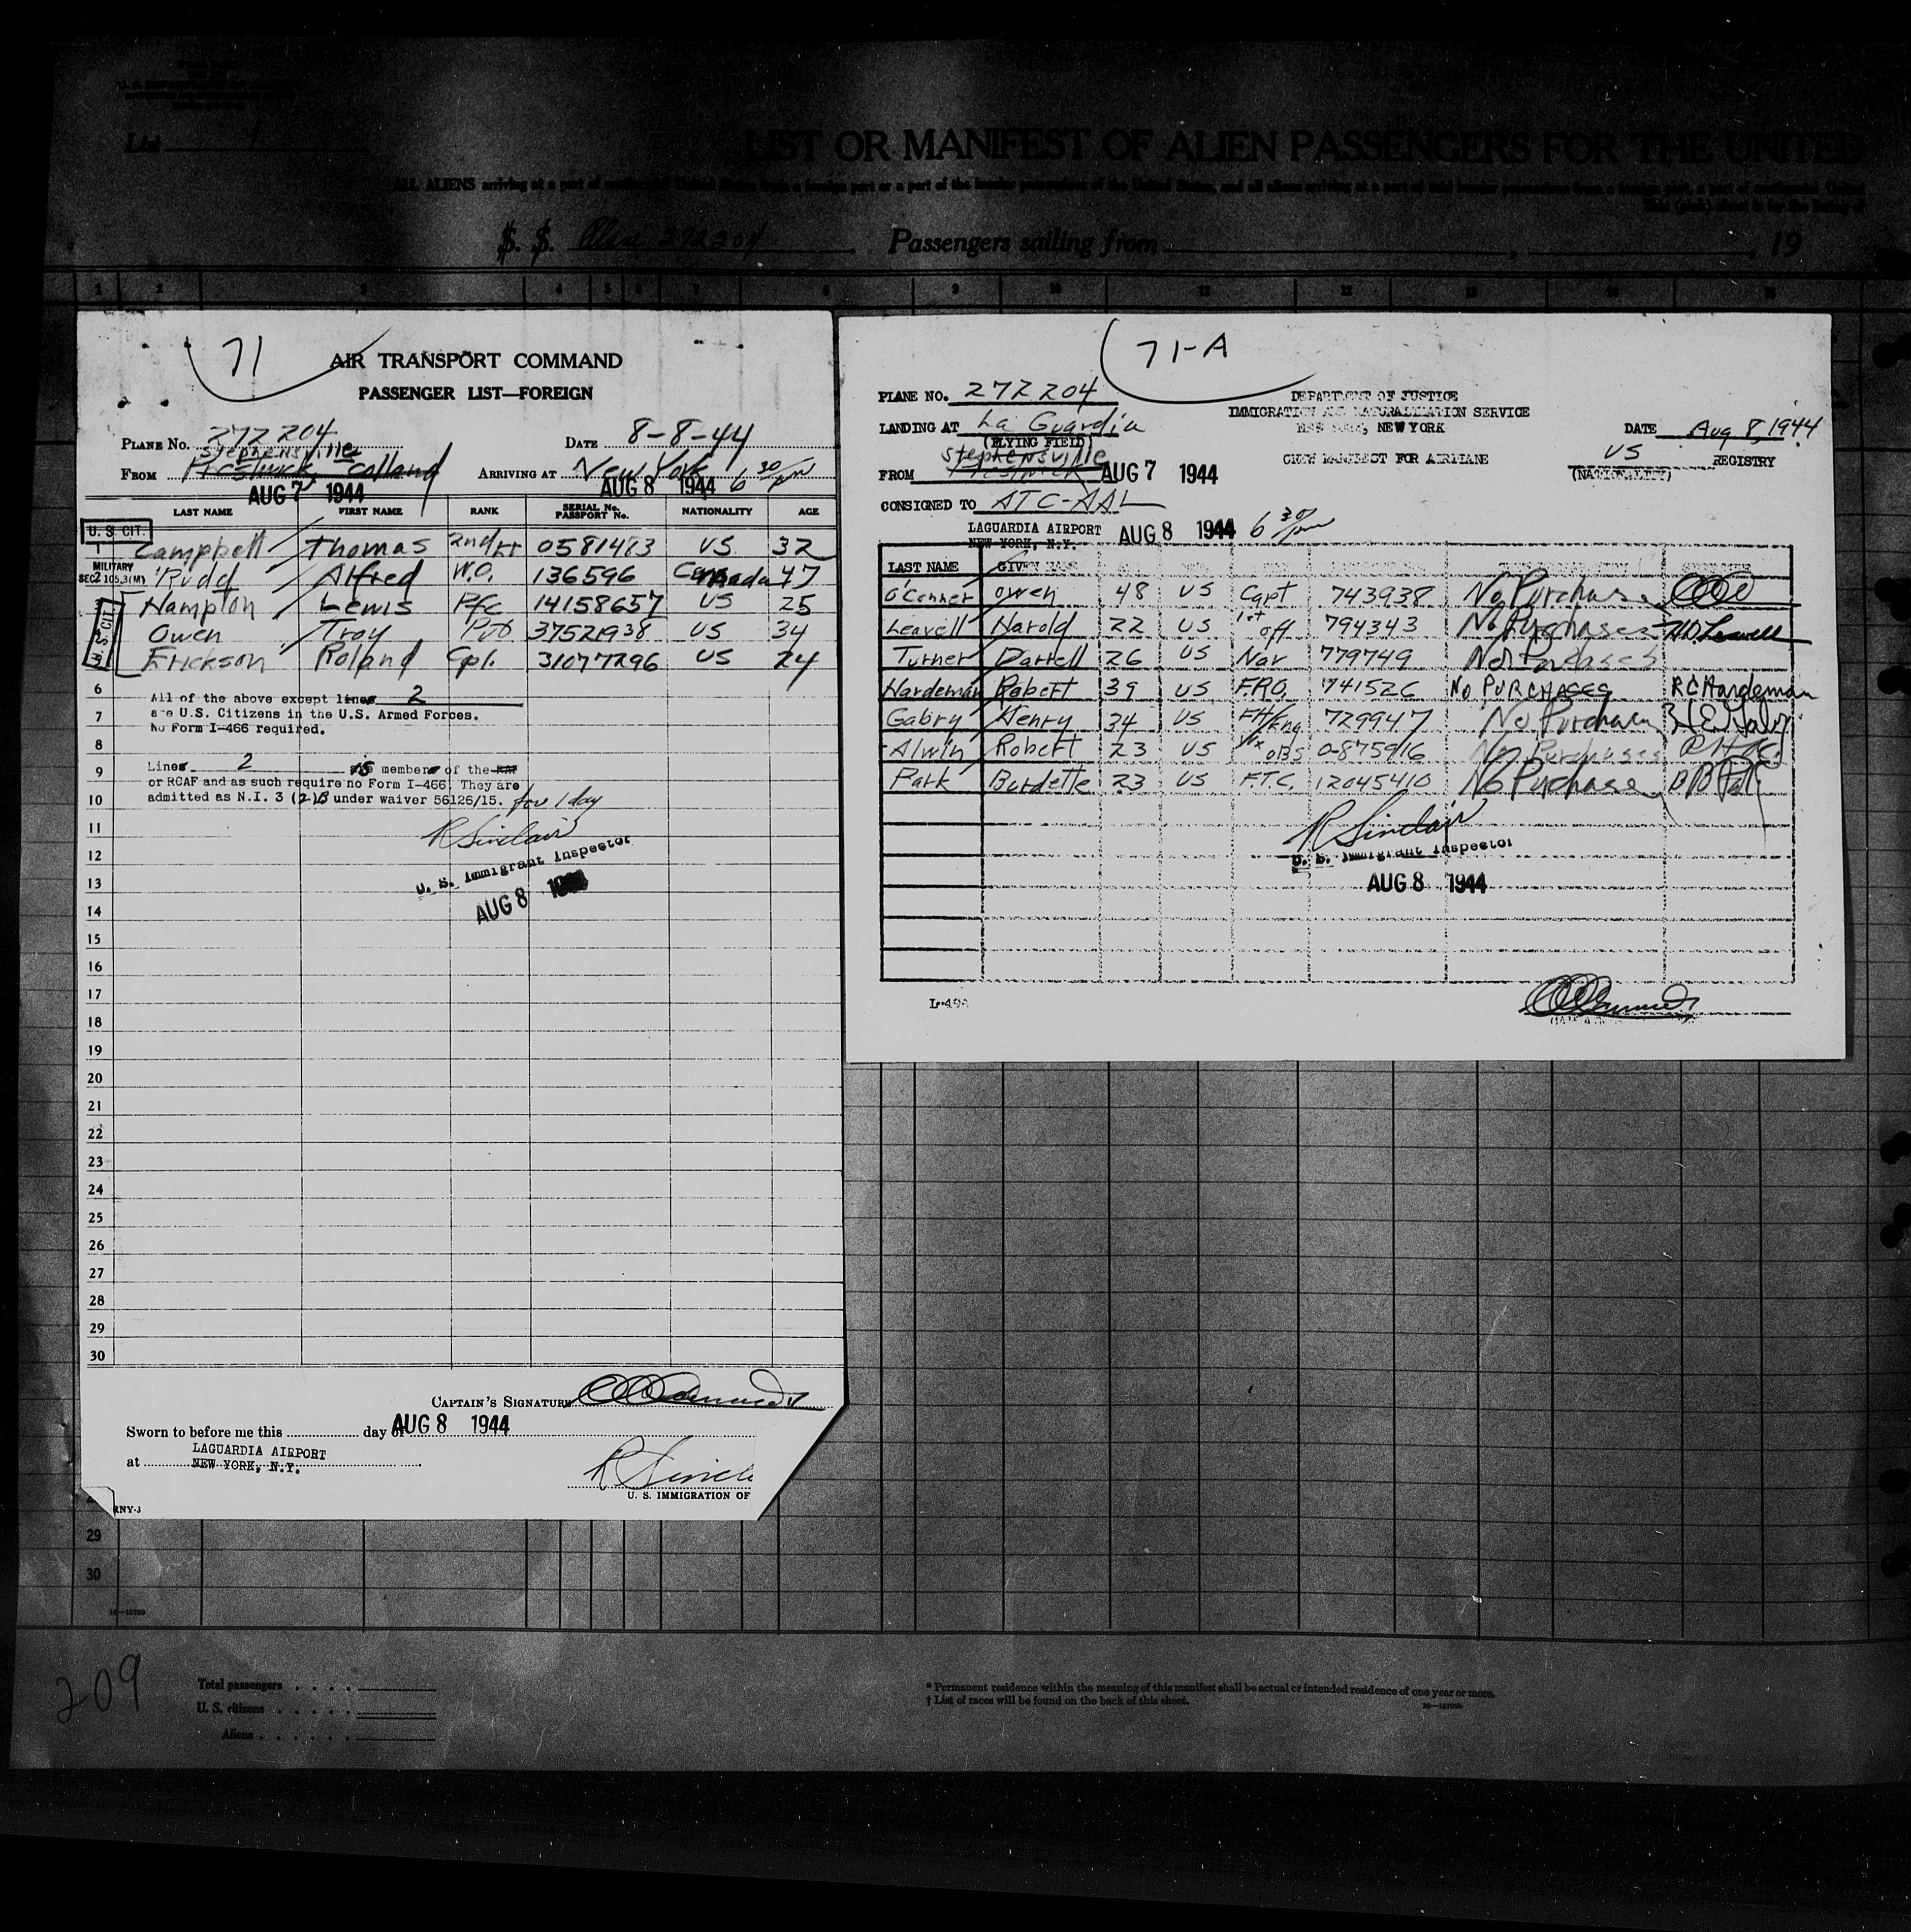 List 1
LIST OR MANIFEST OF ALIEN PASSENGERS FOR THE UNITED
ALL ALIENS arriving at a port of continental United States from a foreign port or a port of the insular possessions of the United States, and all aliens arriving at a port of said insular possessions from a foreign port, a port of continental United
S. S. Plane 272204 Passengers sailing from , 19
71
AIR TRANSPORT COMMAND
PASSENGER LIST—FOREIGN
PLANE No. 272204 DATE 8-8-44
Stephensville
FROM Prestwick Scotland ARRIVING AT New York 6 30/pm
AUG 7 1944 AUG 8 1944
LAST NAME FIRST NAME RANK SERIAL No. PASSPORT No. NATIONALITY AGE
U. S. CIT.
1 Campbell Thomas 2nd Lt 0581483 US 32
MILITARY
SEC 2 105.3(M) Rudd Alfred W.O. 136596 Canada 47
U. S. CIT.
Hampton Lewis Pfc 14158657 US 25
Owen Troy Pvt 37521938 US 34
Erickson Roland Cpl. 31077296 US 24
6 All of the above except lines 2
7 are U.S. Citizens in the U.S. Armed Forces.
No Form I-466 required.
8
9 Lines 2 is members of the RAF
or RCAF and as such require no Form I-466. They are
10 admitted as N.I. 3 (2)B under waiver 56126/15. for 1 day
11 R Sinclair
12 U. S. Immigrant Inspector
13
14 AUG 8 1944
15
16
17
18
19
20
21
22
23
24
25
26
27
28
29
30
CAPTAIN'S SIGNATURE
Sworn to before me this day of AUG 8 1944
LAGUARDIA AIRPORT
at NEW YORK, N.Y.
R Sincl
U. S. IMMIGRATION OF
RNY-3
71-A
PLANE NO. 272204
DEPARTMENT OF JUSTICE
IMMIGRATION AND NATURALIZATION SERVICE
NEW YORK, NEW YORK
LANDING AT La Guardia
(FLYING FIELD)
DATE Aug 8, 1944
Stephensville
FROM Prestwick AUG 7 1944
CREW MANIFEST FOR AIRPLANE
US REGISTRY
(NATIONALITY)
CONSIGNED TO ATC-AAL
LAGUARDIA AIRPORT
NEW YORK, N.Y. AUG 8 1944 6 30/pm
LAST NAME GIVEN NAME
O'Conner Owen 48 US Capt 743938 No Purchase
Leavell Harold 22 US 1st off 794343 No Purchases H.D. Leavell
Turner Darrell 26 US Nav 779749 No Purchases
Hardeman Robert 39 US F.R.O. 741526 NO PURCHASES RC Hardeman
Gabry Henry 34 US Flt/Eng 729947 No Purchases H E Gabry
Alwin Robert 23 US OBS 0-875916 No Purchases
Park Burdette 23 US F.T.C. 12045410 No Purchase
R Sinclair
U. S. Immigrant Inspector
AUG 8 1944
L-49A
29
30
16—18709
209
Total passengers
U. S. citizens
Aliens
* Permanent residence within the meaning of this manifest shall be actual or intended residence of one year or more.
† List of races will be found on the back of this sheet.